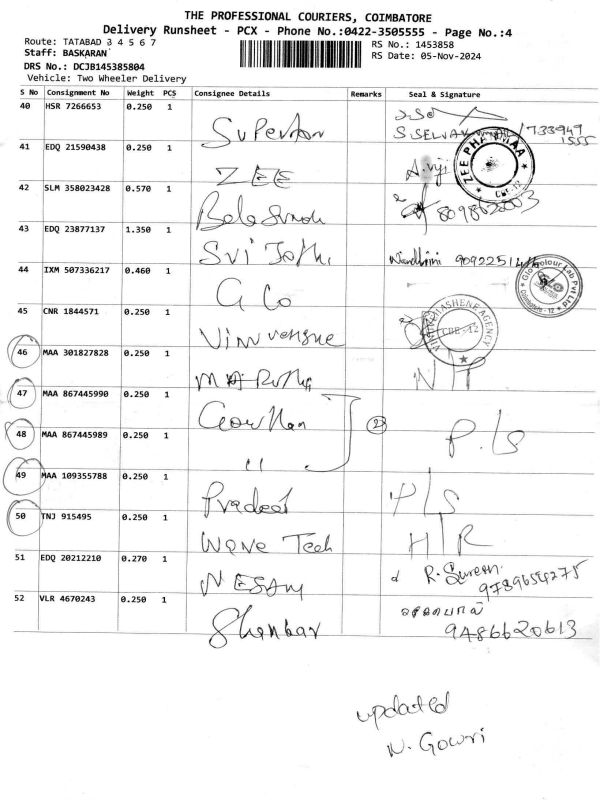 THE PROFESSIONAL COURIERS, COIMBATORE
Delivery Runsheet - PCX - Phone No.:0422-3505555 - Page No.:4
Route: TATABAD 3 4 5 6 7
RS No.: 1453858
Staff: BASKARAN
RS Date: 05-Nov-2024
DRS No.: DCJB145385804
Vehicle: Two Wheeler Delivery
S No Consignment No Weight PCS Consignee Details Remarks Seal & Signature
40 HSR 7266653 0.250 1
S.SELVA
41 EDQ 21590438 0.250 1 ZEE A.viji
42 SLM 358023428 0.570 1
43 EDQ 23877137 1.350 1 Sri Jothi Nandhini
44 IXM 507336217 0.460 1 G Co
Glo Colour Lab Pvt Ltd
Coimbatore - 12
45 CNR 1844571 0.250 1
AGENCY
CBE - 12
46 MAA 301827828 0.250 1 MARUTHI
47 MAA 867445990 0.250 1 Gowtham 2
48 MAA 867445989 0.250 1 " P.Ls
49 MAA 109355788 0.250 1 Pradeep P/S
50 TNJ 915495 0.250 1 Wave Tech H/R
51 EDQ 20212210 0.270 1 NESAM R. Suresh
9789654275
52 VLR 4670243 0.250 1 Shankar
9486620613
updated
N. Gowri